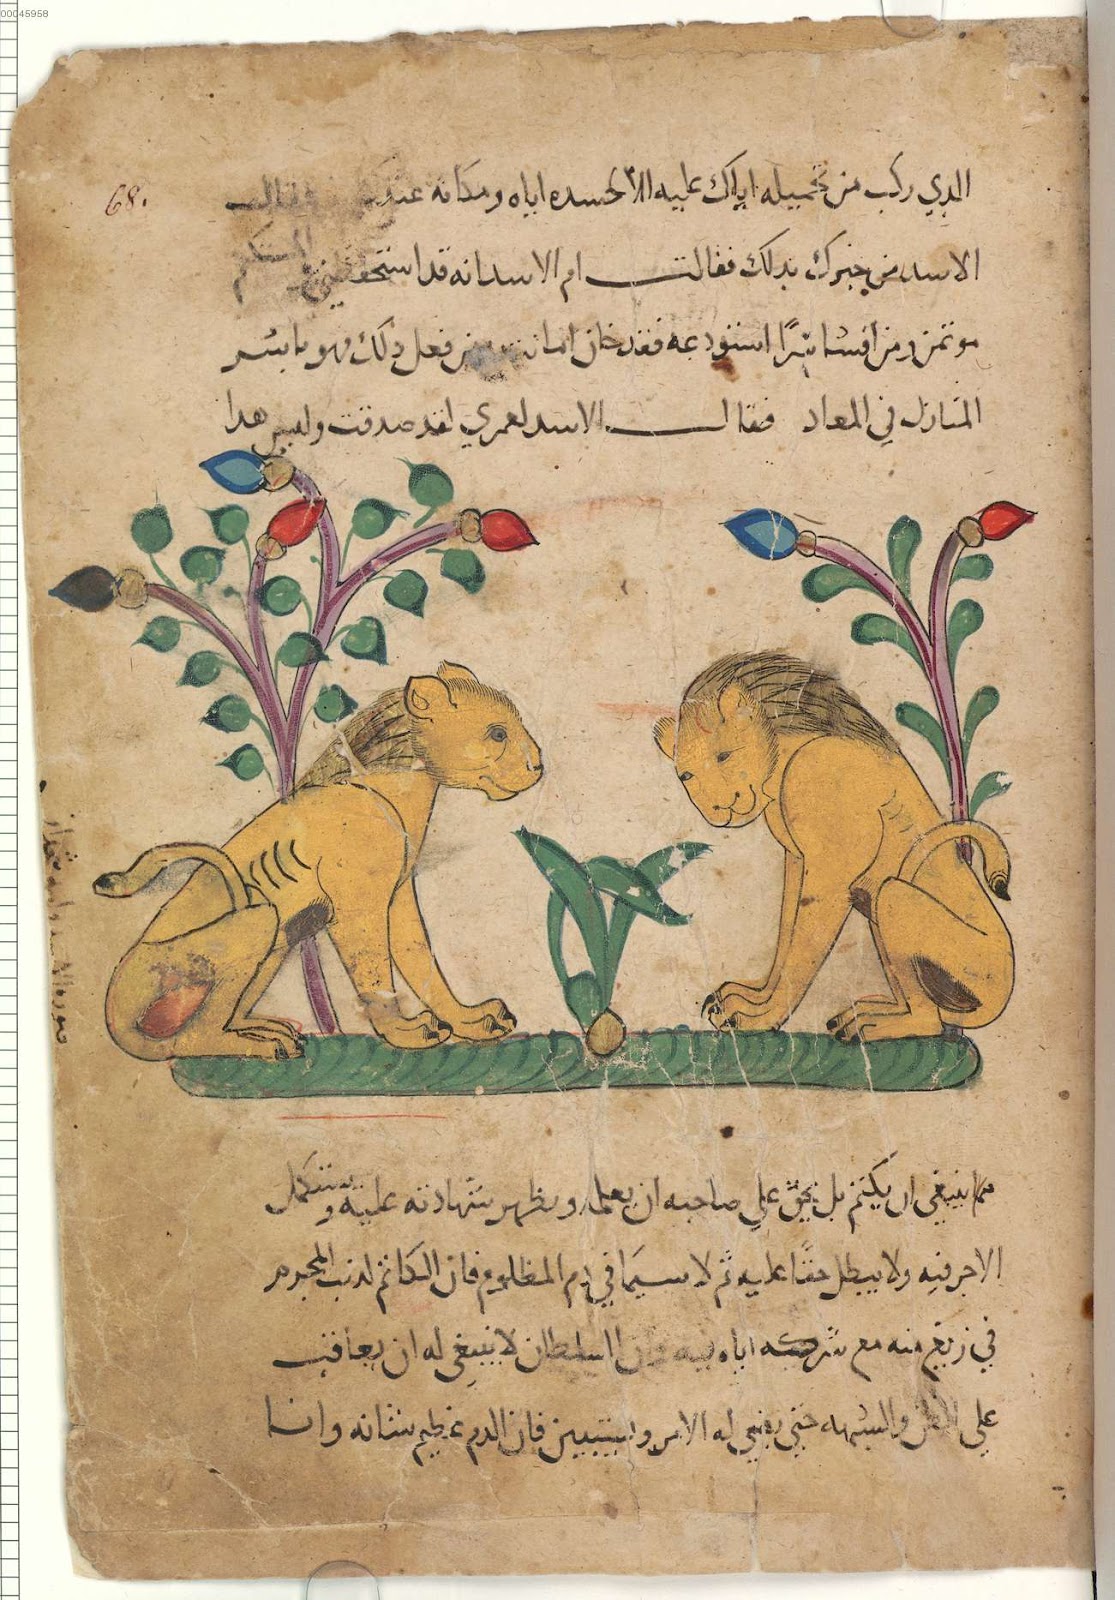 00045958
68.
الذي ركب من تحميله اياك عليه الا لحسده اياه ومكانه عندك وقال
الاسد من خبرك بذلك فقالت ام الاسد انه قد استحفظني المستكتم
موتمن ومن افشا سرا استودعه فقد خان امانته ومن فعل ذلك فهو بايسر
المنازل في المعاد فقال الاسد لعمري لقد صدقت وليس هذا
مما ينبغي ان يكتم بل يحق على صاحبه ان يعلمه ويظهر شهادته علانية ويستكمل
الاجر فيه ولا يبطل حقا علمه ثم لا سيما في دم المظلوم فان الكاتم لذنب المجرم
في زيغ منه مع شركه اياه فيه وان السلطان لا ينبغي له ان يعاقب
على الظن والشبهه حتى يفي له الامر ويستبين فان الدم عظيم شانه وانا